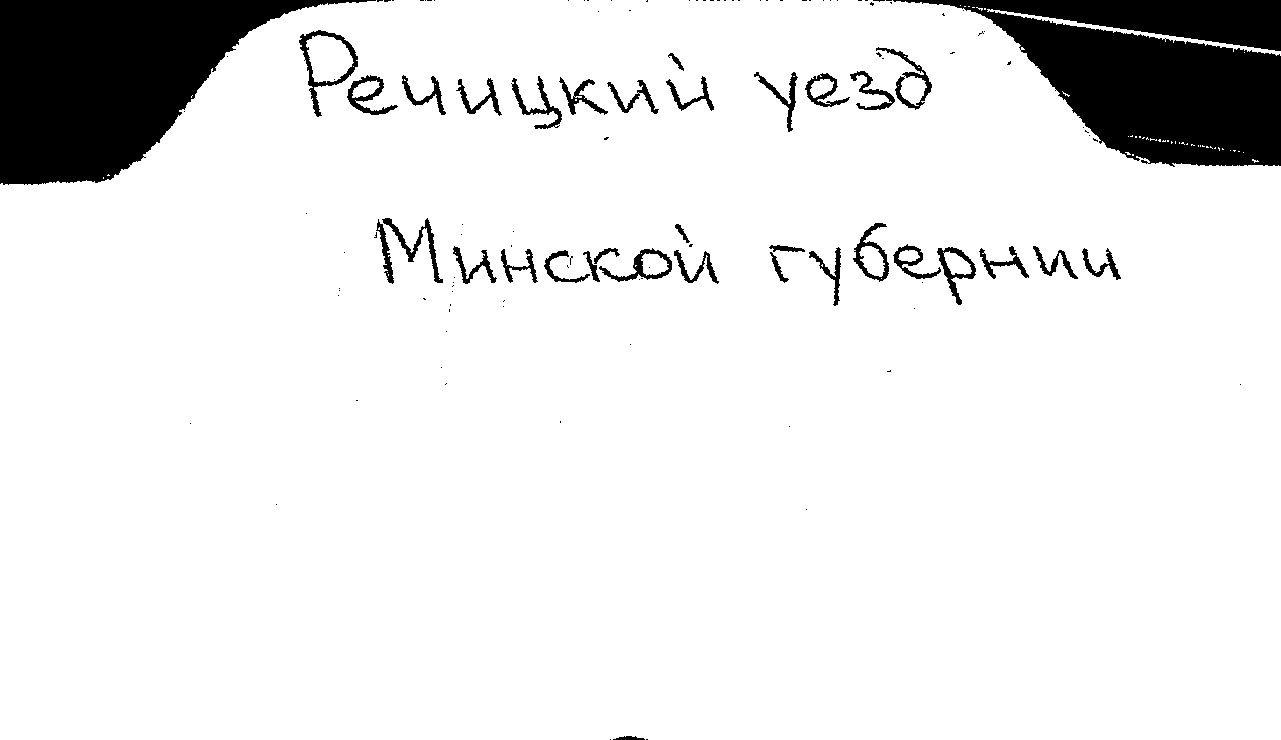 Речицкий уезд
Минской губернии